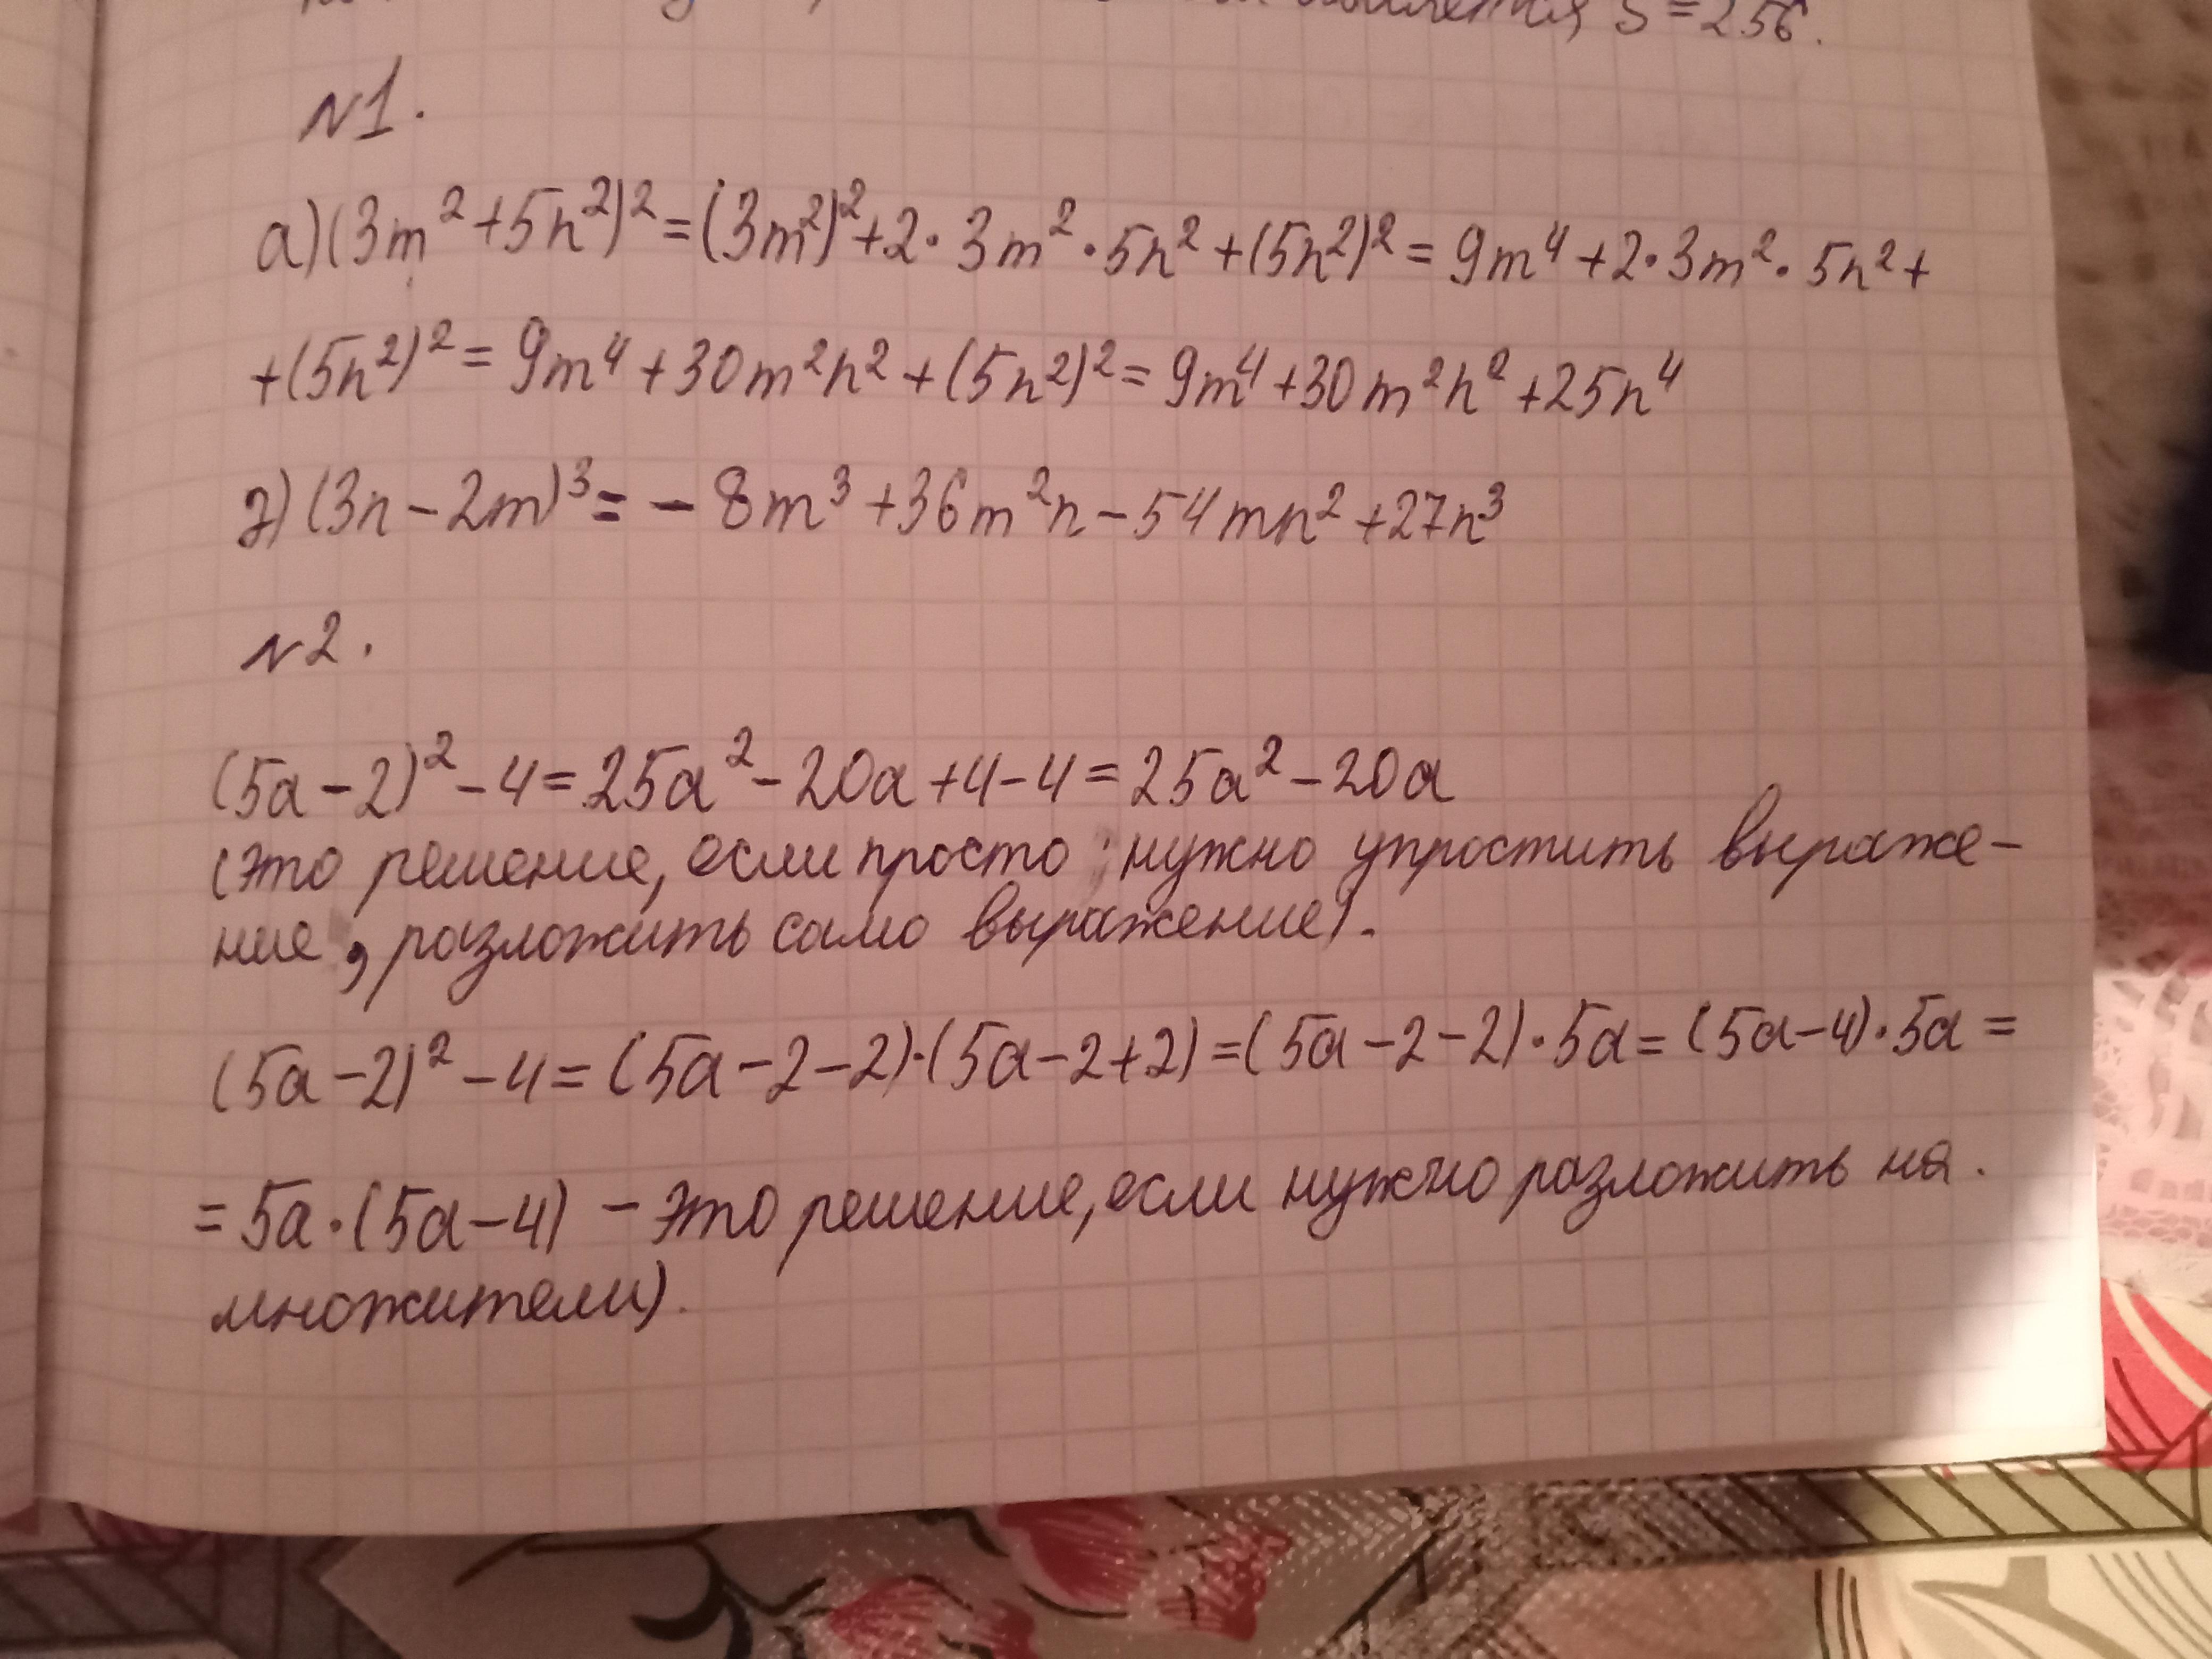 S = 256.
№1.
а) (3m² + 5n²)² = (3m²)² + 2 · 3m² · 5n² + (5n²)² = 9m⁴ + 2 · 3m² · 5n² +
+ (5n²)² = 9m⁴ + 30m²n² + (5n²)² = 9m⁴ + 30m²n² + 25n⁴
г) (3n - 2m)³ = - 8m³ + 36m²n - 54mn² + 27n³
№2.
(5a - 2)² - 4 = 25a² - 20a + 4 - 4 = 25a² - 20a
(это решение, если просто нужно упростить выраже-
ние, разложить само выражение).
(5a - 2)² - 4 = (5a - 2 - 2) · (5a - 2 + 2) = (5a - 2 - 2) · 5a = (5a - 4) · 5a =
= 5a · (5a - 4) - это решение, если нужно разложить на
множители).